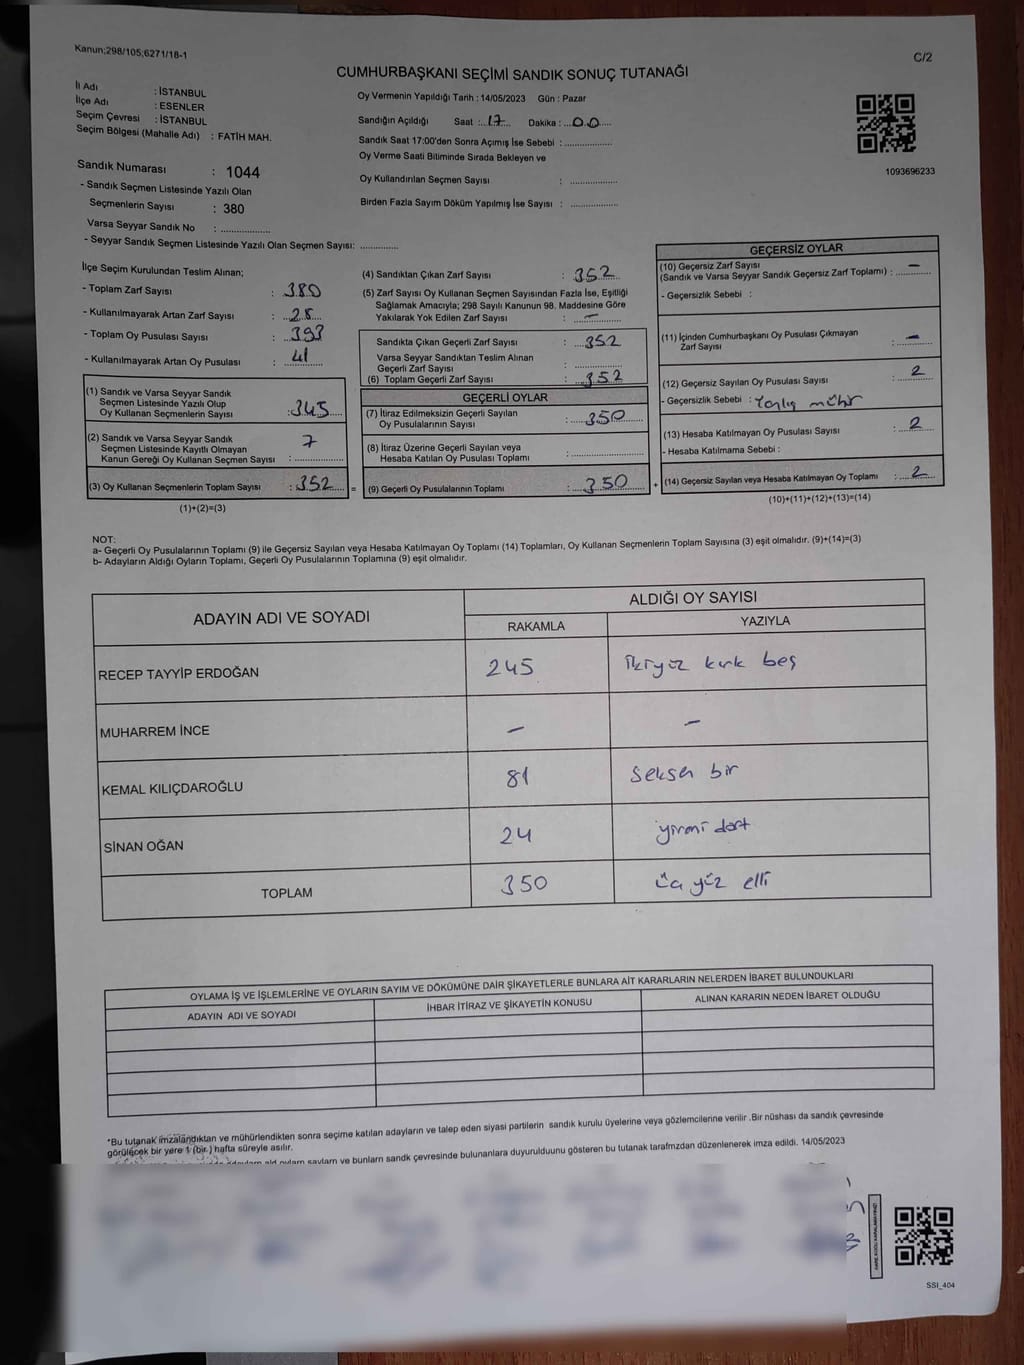 Kanun;298/105;6271/18-1
C/2
CUMHURBAŞKANI SEÇİMİ SANDIK SONUÇ TUTANAĞI
İl Adı : İSTANBUL
İlçe Adı : ESENLER
Seçim Çevresi : İSTANBUL
Seçim Bölgesi (Mahalle Adı) : FATİH MAH.
Oy Vermenin Yapıldığı Tarih : 14/05/2023 Gün : Pazar
Sandığın Açıldığı Saat :..17.... Dakika :...00....
Sandık Saat 17:00'den Sonra Açımış İse Sebebi : ................
Oy Verme Saati Bitiminde Sırada Bekleyen ve
Oy Kullandırılan Seçmen Sayısı : ................
Birden Fazla Sayım Döküm Yapılmış İse Sayısı : ................
1093696233
Sandık Numarası : 1044
- Sandık Seçmen Listesinde Yazılı Olan
Seçmenlerin Sayısı : 380
Varsa Seyyar Sandık No : ................
- Seyyar Sandık Seçmen Listesinde Yazılı Olan Seçmen Sayısı: ............
İlçe Seçim Kurulundan Teslim Alınan;
- Toplam Zarf Sayısı : 380
- Kullanılmayarak Artan Zarf Sayısı : 28
- Toplam Oy Pusulası Sayısı : 393
- Kullanılmayarak Artan Oy Pusulası : 41
(1) Sandık ve Varsa Seyyar Sandık
Seçmen Listesinde Yazılı Olup
Oy Kullanan Seçmenlerin Sayısı : 345
(2) Sandık ve Varsa Seyyar Sandık
Seçmen Listesinde Kayıtlı Olmayan
Kanun Gereği Oy Kullanan Seçmen Sayısı : 7
(3) Oy Kullanan Seçmenlerin Toplam Sayısı : 352 =
(1)+(2)=(3)
(4) Sandıktan Çıkan Zarf Sayısı : 352
(5) Zarf Sayısı Oy Kullanan Seçmen Sayısından Fazla İse, Eşitliği
Sağlamak Amacıyla; 298 Sayılı Kanunun 98. Maddesine Göre
Yakılarak Yok Edilen Zarf Sayısı : —
Sandıkta Çıkan Geçerli Zarf Sayısı : 352
Varsa Seyyar Sandıktan Teslim Alınan
Geçerli Zarf Sayısı : ................
(6) Toplam Geçerli Zarf Sayısı : 352
GEÇERLİ OYLAR
(7) İtiraz Edilmeksizin Geçerli Sayılan
Oy Pusulalarının Sayısı : 350
(8) İtiraz Üzerine Geçerli Sayılan veya
Hesaba Katılan Oy Pusulası Toplamı : ................
(9) Geçerli Oy Pusulalarının Toplamı : 350 +
GEÇERSİZ OYLAR
(10) Geçersiz Zarf Sayısı
(Sandık ve Varsa Seyyar Sandık Geçersiz Zarf Toplamı) : —
- Geçersizlik Sebebi :
(11) İçinden Cumhurbaşkanı Oy Pusulası Çıkmayan
Zarf Sayısı : —
(12) Geçersiz Sayılan Oy Pusulası Sayısı : 2
- Geçersizlik Sebebi : Yanlış mühür
(13) Hesaba Katılmayan Oy Pusulası Sayısı : 2
- Hesaba Katılmama Sebebi :
(14) Geçersiz Sayılan veya Hesaba Katılmayan Oy Toplamı : 2
(10)+(11)+(12)+(13)=(14)
NOT:
a- Geçerli Oy Pusulalarının Toplamı (9) ile Geçersiz Sayılan veya Hesaba Katılmayan Oy Toplamı (14) Toplamları, Oy Kullanan Seçmenlerin Toplam Sayısına (3) eşit olmalıdır. (9)+(14)=(3)
b- Adayların Aldığı Oyların Toplamı, Geçerli Oy Pusulalarının Toplamına (9) eşit olmalıdır.
ADAYIN ADI VE SOYADI
ALDIĞI OY SAYISI
RAKAMLA YAZIYLA
RECEP TAYYİP ERDOĞAN 245 ikiyüz kırk beş
MUHARREM İNCE — —
KEMAL KILIÇDAROĞLU 81 seksen bir
SİNAN OĞAN 24 yirmi dört
TOPLAM 350 üç yüz elli
OYLAMA İŞ VE İŞLEMLERİNE VE OYLARIN SAYIM VE DÖKÜMÜNE DAİR ŞİKAYETLERLE BUNLARA AİT KARARLARIN NELERDEN İBARET BULUNDUKLARI
ADAYIN ADI VE SOYADI İHBAR İTİRAZ VE ŞİKAYETİN KONUSU ALINAN KARARIN NEDEN İBARET OLDUĞU
*Bu tutanak imzalandıktan ve mühürlendikten sonra seçime katılan adayların ve talep eden siyasi partilerin sandık kurulu üyelerine veya gözlemcilerine verilir .Bir nüshası da sandık çevresinde
görülecek bir yere 1 (bir ) hafta süreyle asılır.
sayların ve bunların sandık çevresinde bulunanlara duyurulduunu gösteren bu tutanak tarafımzdan düzenlenerek imza edildi. 14/05/2023
SSI_404